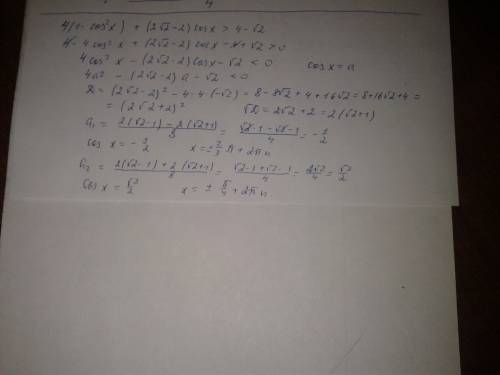 4(1-cos²x) + (2√2-2) cos x > 4-√2
4-4cos²x + (2√2-2) cos x -4+√2 > 0
4cos²x - (2√2-2) cos x - √2 < 0 cos x = a
4a² - (2√2-2) a - √2 < 0
D = (2√2-2)² - 4·4·(-√2) = 8-8√2+4+16√2 = 8+16√2+4 =
= (2√2+2)² √D = 2√2+2 = 2(√2+1)
a₁ = 2(√2-1) - 2(√2+1)/8 = √2-1-√2-1/4 = -1/2
cos x = -1/2 x = ± 2/3 π + 2πn
a₂ = 2(√2-1)+2(√2+1)/8 = √2-1+√2-1/4 = 2√2/4 = √2/2
cos x = √2/2 x = ± π/4 + 2πn